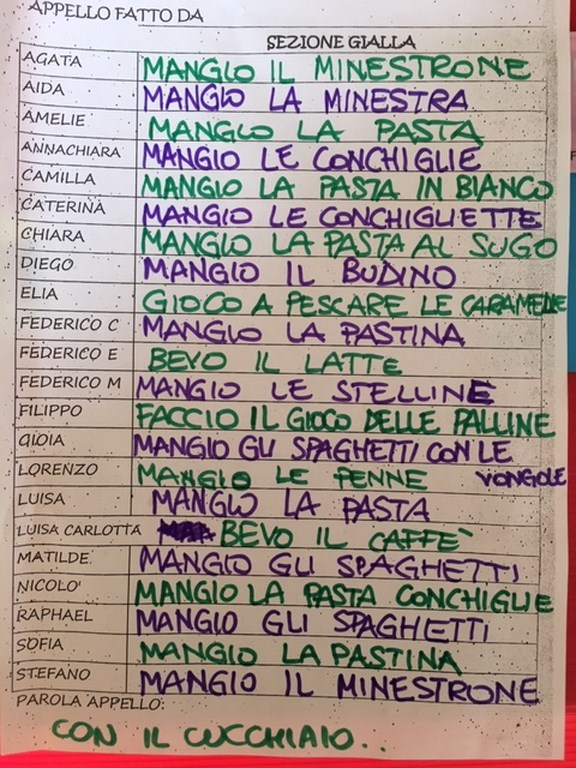 APPELLO FATTO DA
SEZIONE GIALLA
AGATA MANGIO IL MINESTRONE
AIDA MANGIO LA MINESTRA
AMELIE MANGIO LA PASTA
ANNACHIARA MANGIO LE CONCHIGLIE
CAMILLA MANGIO LA PASTA IN BIANCO
CATERINA MANGIO LE CONCHIGLIETTE
CHIARA MANGIO LA PASTA AL SUGO
DIEGO MANGIO IL BUDINO
ELIA GIOCO A PESCARE LE CARAMELLE
FEDERICO C MANGIO LA PASTINA
FEDERICO E BEVO IL LATTE
FEDERICO M MANGIO LE STELLINE
FILIPPO FACCIO IL GIOCO DELLE PALLINE
GIOIA MANGIO GLI SPAGHETTI CON LE
VONGOLE
LORENZO MANGIO LE PENNE
LUISA MANGIO LA PASTA
LUISA CARLOTTA BEVO IL CAFFE'
MATILDE MANGIO GLI SPAGHETTI
NICOLO' MANGIO LA PASTA CONCHIGLIE
RAPHAEL MANGIO GLI SPAGHETTI
SOFIA MANGIO LA PASTINA
STEFANO MANGIO IL MINESTRONE
PAROLA APPELLO:
CON IL CUCCHIAIO..